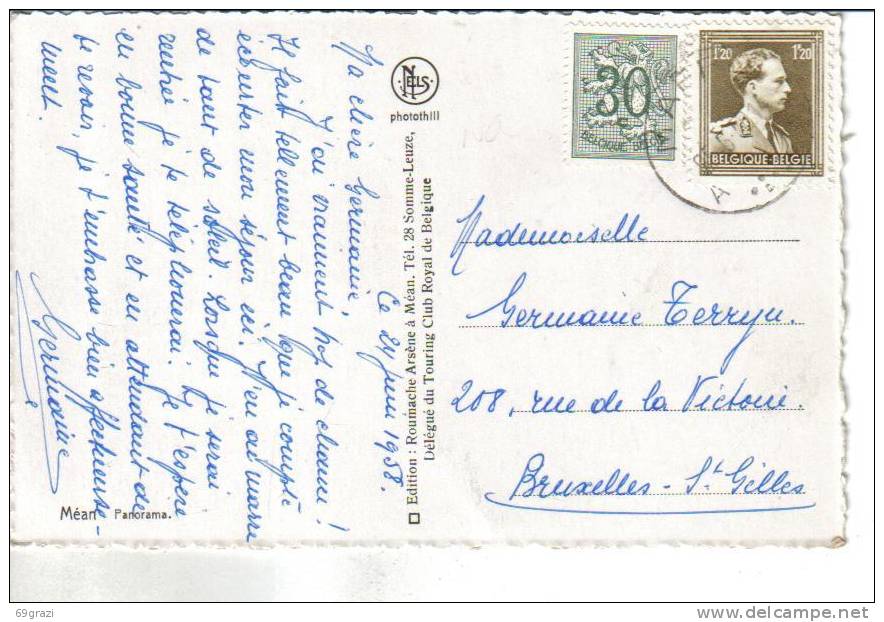 Ce 24 juin 1958.
Ma chère Germaine,
J'ai vraiment bcp de chance!
Il fait tellement beau que je compte
écourter mon séjour ici. J'en ai marre
de tant de soleil. Lorsque je serai
rentrée je te téléphonerai. Je t'espère
en bonne santé et en attendant de
te revoir, je t'embrasse bien affectueuse-
ment.
Germaine
Méan Panorama.
NELS
photothill
Edition : Roumache Arsène à Méan. Tél. 28 Somme-Leuze,
Délégué du Touring Club Royal de Belgique
30
BELGIQUE-BELGIE
1F20 1F20
BELGIQUE-BELGIE
Mademoiselle
Germaine Terryn.
208, rue de la Victoire
Bruxelles - St Gilles
69grazi
www.delcampe.net